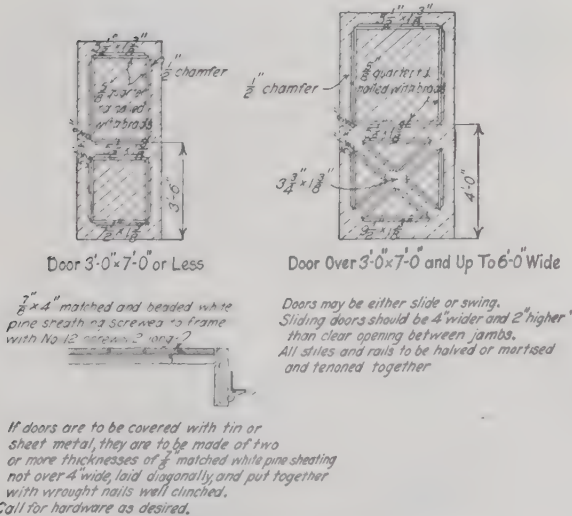 5 1/2" × 1 3/8"
1/2" chamfer
nailed
with brads
3'-6"
Door 3'-0" × 7'-0" or Less
1/2" chamfer
quarter rd
nailed with brads
3 3/4" × 1 3/8"
4'-0"
Door Over 3'-0" × 7'-0" and Up To 6'-0" Wide
7/8" × 4" matched and beaded white
pine sheathing screwed to frame
with No 12 screws 2" long
Doors may be either slide or swing.
Sliding doors should be 4" wider and 2" higher
than clear opening between jambs.
All stiles and rails to be halved or mortised
and tenoned together
If doors are to be covered with tin or
sheet metal, they are to be made of two
or more thicknesses of 7/8" matched white pine sheating
not over 4" wide, laid diagonally, and put together
with wrought nails well clinched.
Call for hardware as desired.